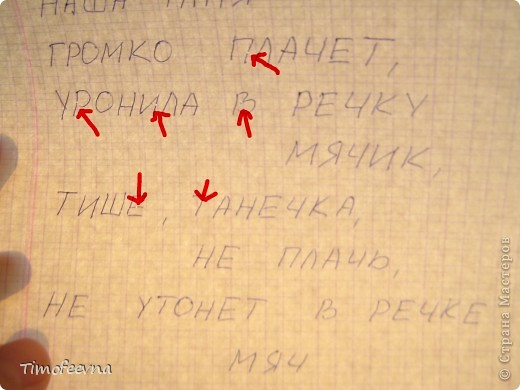 НАША ТАНЯ
ГРОМКО ПЛАЧЕТ,
УРОНИЛА В РЕЧКУ
МЯЧИК,
ТИШЕ, ТАНЕЧКА,
НЕ ПЛАЧЬ,
НЕ УТОНЕТ В РЕЧКЕ
МЯЧ
Timofeevna
© Страна Мастеров